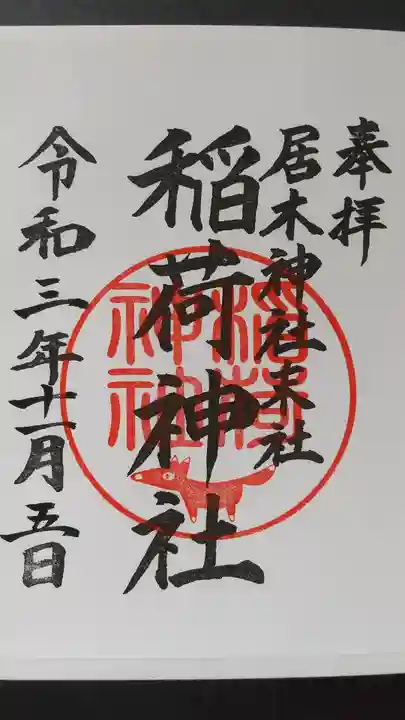 奉拝
居木神社末社
稲荷神社
令和三年十一月五日
稲荷神社